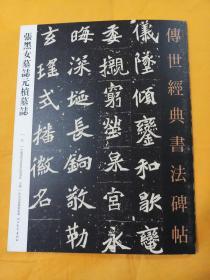 傳世經典書法碑帖
儀墜傾鑾和歇
委櫬窮塋泉宮永
晦深埏長鐍敬勒
玄瑤式播徽名
張黑女墓誌元楨墓誌